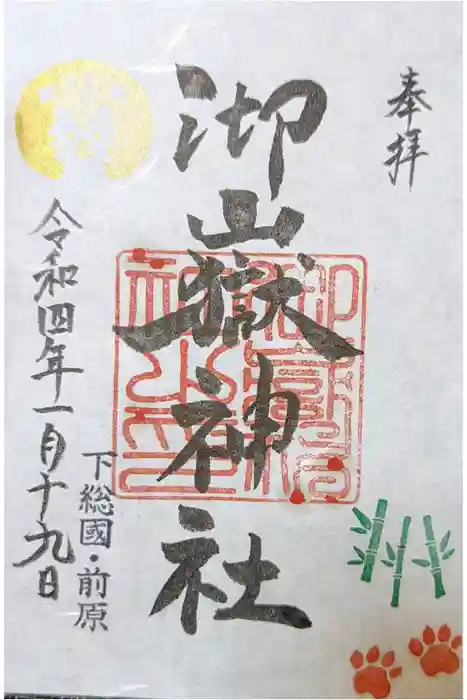 奉拝
御嶽神社
下総國・前原
令和四年一月十九日